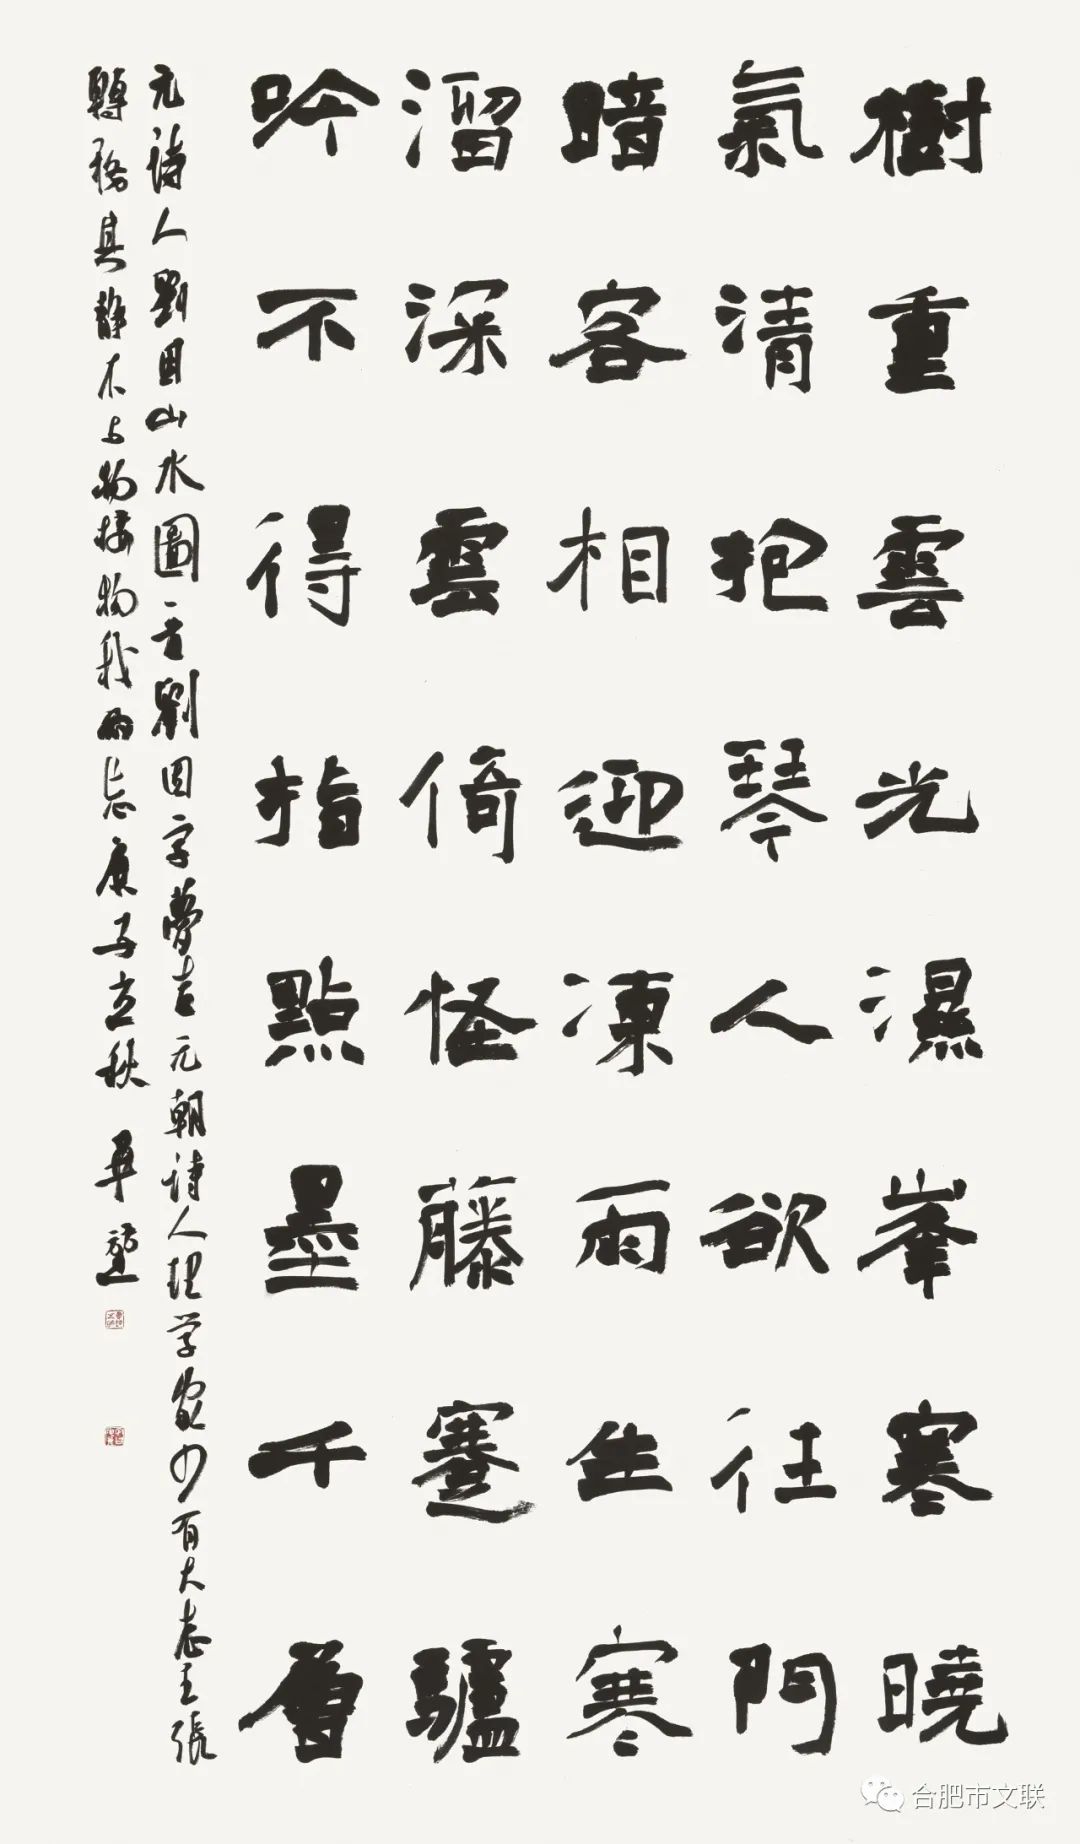 樹重雲光濕峯寒曉
氣清抱琴人欲往門
暗客相迎凍雨生寒
溜深雲倚怪藤蹇驢
吟不得指點墨千層
元詩人劉因山水圖一首劉因字夢吉元朝詩人理学家少有大志主張
專務其靜不与物接物我兩忘庚子立秋
合肥市文联